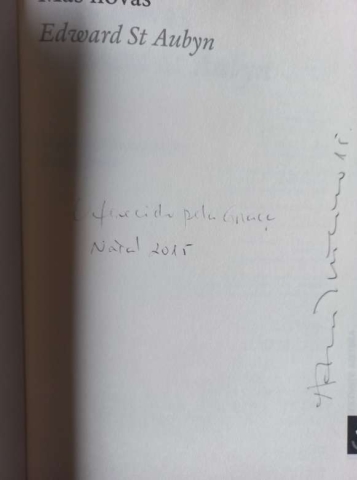 Más novas
Edward St Aubyn
Oferecido pela Graça
Natal 2015